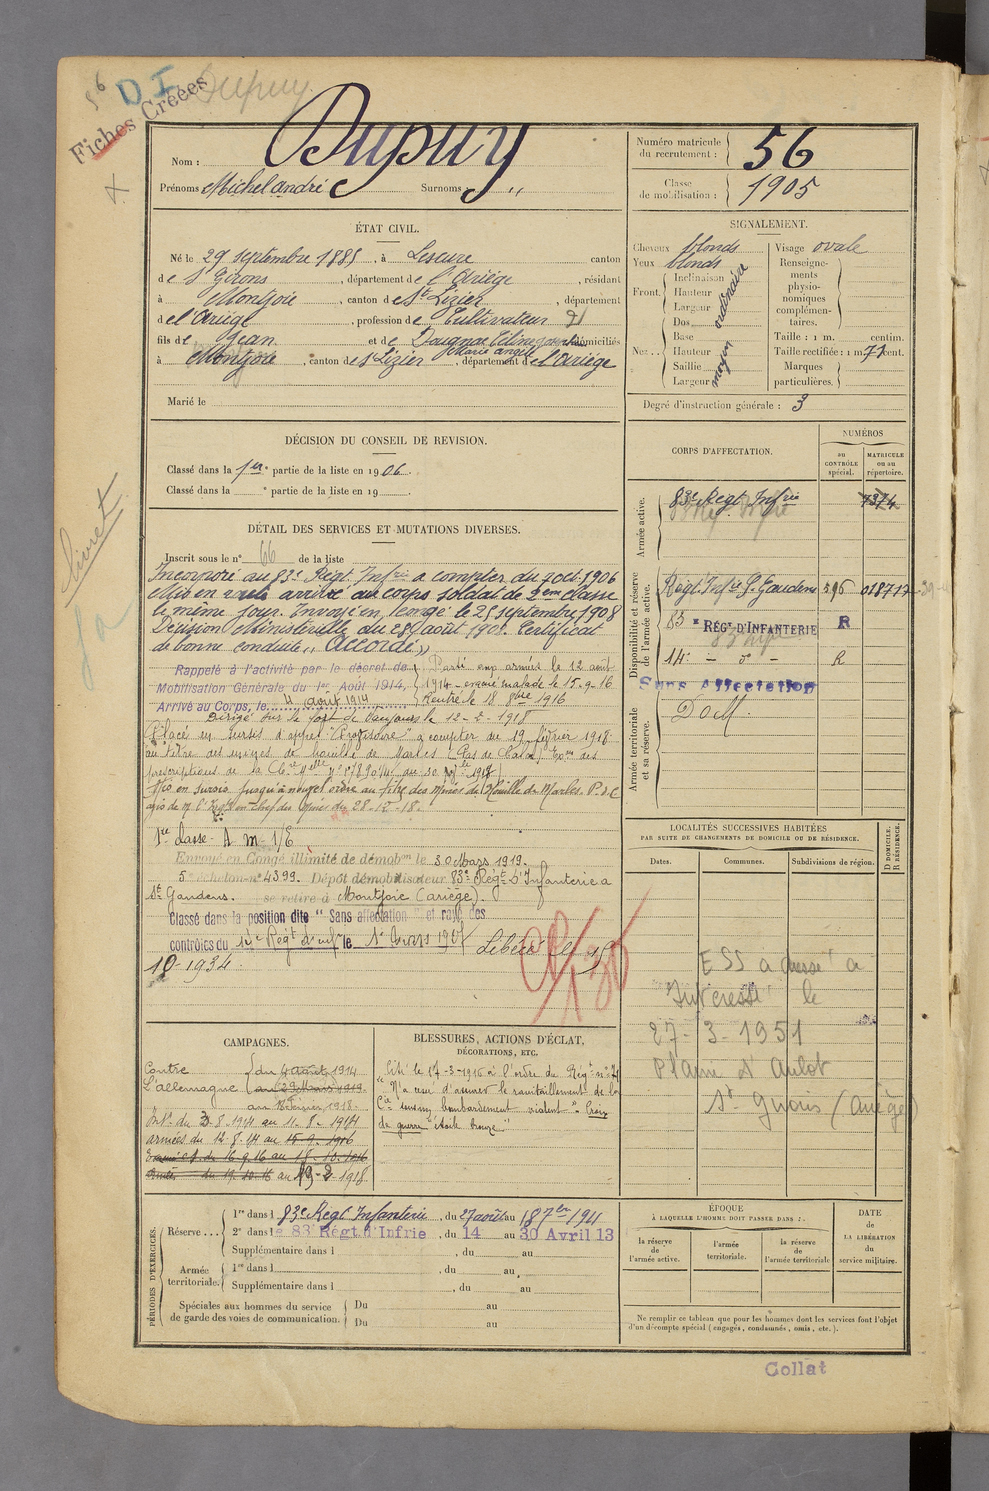 56
D I
Dupuy
Fiches Créées
Nom : Dupuy
Prénoms Michel André Surnoms "
Numéro matricule du recrutement : 56
Classe de mobilisation : 1905
ÉTAT CIVIL.
Né le 29 septembre 1885, à Lescure canton
de St Girons, département de l'Ariège, résidant
à Montjoie, canton de St Lizier, département
de l'Ariège, profession de Cultivateur
fils de Jean et de Dougnac Céline domiciliés
Marie Angèle
à Montjoie, canton de St Lizier, département de l'Ariège
Marié le
SIGNALEMENT.
Cheveux blonds
Yeux blonds
Front. Inclinaison
Hauteur
Largeur
ordinaire
Nez... Dos
Base
Hauteur
Saillie
Largeur
moyen
Visage ovale
Renseignements physionomiques complémentaires.
Taille : 1 m. centim.
Taille rectifiée : 1 m. 71 cent.
Marques particulières.
Degré d'instruction générale : 3
DÉCISION DU CONSEIL DE REVISION.
Classé dans la 1re partie de la liste en 1906.
Classé dans la e partie de la liste en 19
DÉTAIL DES SERVICES ET MUTATIONS DIVERSES.
Inscrit sous le n° 66 de la liste
Incorporé au 83e Régt Infrie à compter du 7 oct. 1906
arrivé au corps soldat de 2ème classe
le même jour. Envoyé en congé le 25 septembre 1908
Décision Ministérielle du 28 août 1908. Certificat
de bonne conduite "Accordé"
Rappelé à l'activité par le décret de
Mobilisation Générale du 1er Août 1914,
Arrivé au Corps, le 4 août 1914
Parti aux armées le 12 août
1914 - évacué malade le 15-9-16
Rentré le 18 8bre 1916
Dirigé sur le fort de Vaujours le 12-2-1918
Placé en sursis d'appel "Provisoire" à compter du 19 février 1918
au titre des mines de houille de Marles (Pas de Calais)
prescriptions de la
Mis en sursis jusqu'à nouvel ordre au titre des Mines de Houille de Marles. P. d C
28-12-18
1re Classe - A m - 1/E
Envoyé en Congé illimité de démobon le 30 Mars 1919.
5e échelon n° 4399. Dépôt démobilisateur 83e Régt d'Infanterie à
St Gaudens. se retire à Montjoie (Ariège).
Classé dans la position dite "Sans affectation" et rayé des
contrôles du 14e Régt d'inf le
Libéré le 15
10-1934
CORPS D'AFFECTATION.
NUMÉROS
au CONTRÔLE spécial.
MATRICULE ou au répertoire.
Armée active.
83e Régt Infrie 7374
Disponibilité et réserve de l'armée active.
Régt Infie St Gaudens 596 018717
83e RÉGt D'INFANTERIE R
14e - d° - R
Sans Affectation
Armée territoriale et sa réserve.
DoM
LOCALITÉS SUCCESSIVES HABITÉES
PAR SUITE DE CHANGEMENTS DE DOMICILE OU DE RÉSIDENCE.
Dates. Communes. Subdivisions de région. D DOMICILE. R RÉSIDENCE.
ESS adressé à
Intéressé le
27-3-1951
Plaine d'Aulot
St Girons (Ariège)
CAMPAGNES.
Contre
L'allemagne
du 4 Août 1914
au 29 Mars 1919
au 18 Février 1918
Int. du 3-8-1914 au 11-8-1914
armées du 12.8.14 au 15-9-1916
du 16-9-16 au 18-10-1916
du 19-10-16 au 19-2-1918
BLESSURES, ACTIONS D'ÉCLAT, DÉCORATIONS, ETC.
Cité le 17-3-1916 à l'ordre du Régt n° 21
"N'a cessé d'assurer le ravitaillement de la
Cie malgré bombardement violent". Croix
de guerre "étoile bronze"
PÉRIODES D'EXERCICES.
Réserve... 1re dans le 83e Régt Infanterie, du 27 août au 18 7bre 1911
2e dans le 83e Régt d'Infrie, du 14 au 30 Avril 13
Supplémentaire dans l , du au
Armée territoriale. 1re dans l , du au
Supplémentaire dans l , du au
Spéciales aux hommes du service de garde des voies de communication. Du au
Du au
ÉPOQUE
À LAQUELLE L'HOMME DOIT PASSER DANS :
la réserve de l'armée active.
l'armée territoriale.
la réserve de l'armée territoriale
DATE de LA LIBÉRATION du service militaire.
Ne remplir ce tableau que pour les hommes dont les services font l'objet
d'un décompte spécial (engagés, condamnés, omis, etc.).
Collat
livret